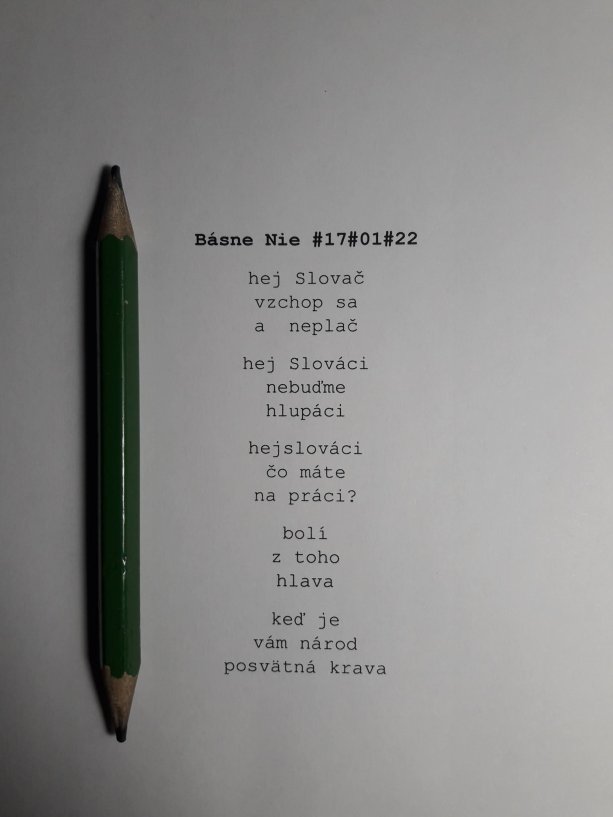 Básne Nie #17#01#22
hej Slovač
vzchop sa
a  neplač
hej Slováci
nebuďme
hlupáci
hejslováci
čo máte
na práci?
bolí
z toho
hlava
keď je
vám národ
posvätná krava